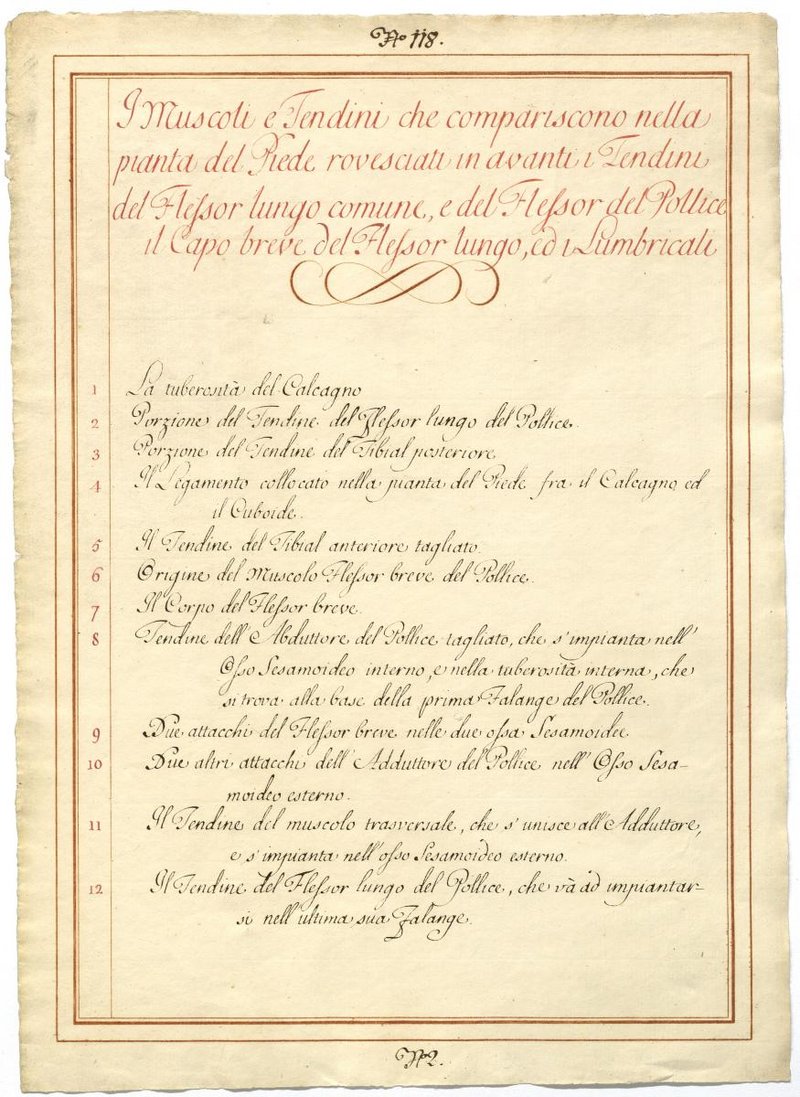 No 118.
I Muscoli e Tendini che compariscono nella
pianta del Piede rovesciati in avanti i Tendini
del Flessor lungo comune, e del Flessor del Pollice
il Capo breve del Flessor lungo, ed i Lumbricali
1 La tuberosità del Calcagno
2 Porzione del Tendine del Flessor lungo del Pollice.
3 Porzione del Tendine del Tibial posteriore
4 Il Legamento collocato nella pianta del Piede fra il Calcagno ed
il Cuboide.
5 Il Tendine del Tibial anteriore tagliato.
6 Origine del Muscolo Flessor breve del Pollice.
7 Il Corpo del Flessor breve.
8 Tendine dell' Abduttore del Pollice tagliato, che s'impianta nell'
Osso Sesamoideo interno, e nella tuberosità interna, che
si trova alla base della prima Falange del Pollice.
9 Due attacchi del Flessor breve nelle due ossa Sesamoidee
10 Due altri attacchi dell' Adduttore del Pollice nell' Osso Sesa-
moideo esterno.
11 Il Tendine del muscolo trasversale, che s'unisce all'Adduttore,
e s'impianta nell'osso Sesamoideo esterno.
12 Il Tendine del Flessor lungo del Pollice, che và ad impiantar-
si nell'ultima sua Falange.
No 2.